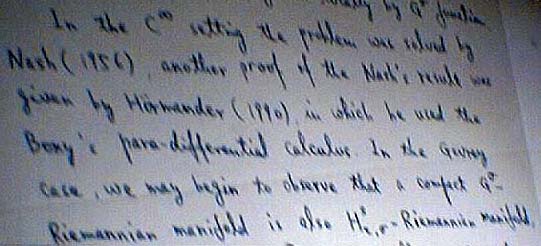 by G^σ
In the C^∞ setting the problem was solved by
Nash (1956), another proof of the Nash's result was
given by Hörmander (1990), in which he used the
Bony's para-differential calculus. In the Gevrey
case, we may begin to observe that a compact G^σ-
Riemannian manifold is also H^σ_{τ,r}-Riemannian manifold,